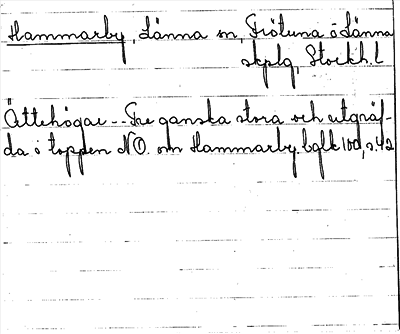 Hammarby, Länna sn, Frötuna o Länna
skplg, Stockh. l
Ättehögar -- Tre ganska stora och utgräf-
da i toppen NO. om Hammarby. bglk 100, s. 42